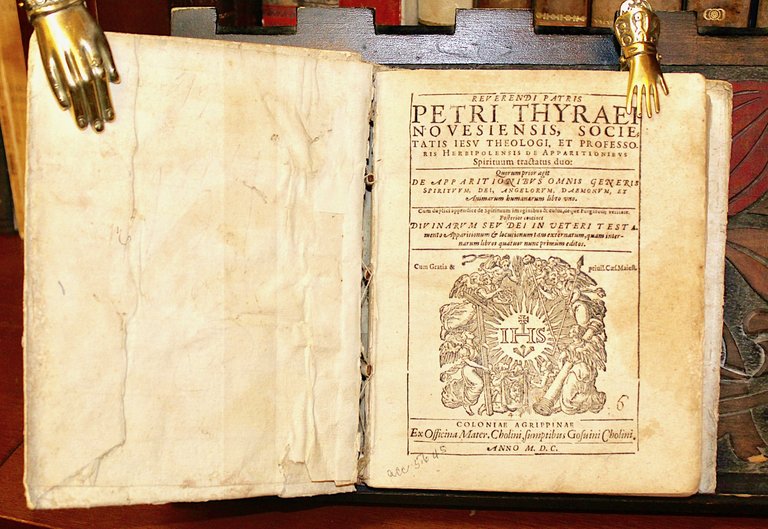 REVERENDI PATRIS
PETRI THYRAEI
NOVESIENSIS, SOCIE,
TATIS IESV THEOLOGI, ET PROFESSO
RIS HERBIPOLENSIS DE APPARITIONIBVS
Spirituum tractatus duo:
Quorum prior agit
DE APPARITIONIBVS OMNIS GENERIS
SPIRITVVM, DEI, ANGELORVM, DAEMONVM, ET
Animarum humanarum libro vno.
Cum duplici appendice de Spirituum imaginibus & cultu, deque Purgatorij veritate.
Posterior continet
DIVINARVM SEV DEI IN VETERI TESTA
mento Apparitionum & locutionum tam externarum, quam inter-
narum libros quatuor nunc primùm editos.
Cum Gratia & priuil. Cæs. Maiest.
IHS
6
COLONIAE AGRIPPINAE
Ex Officina Mater. Cholini, sumptibus Gosuini Cholini.
ANNO M. D. C.
acc 5645